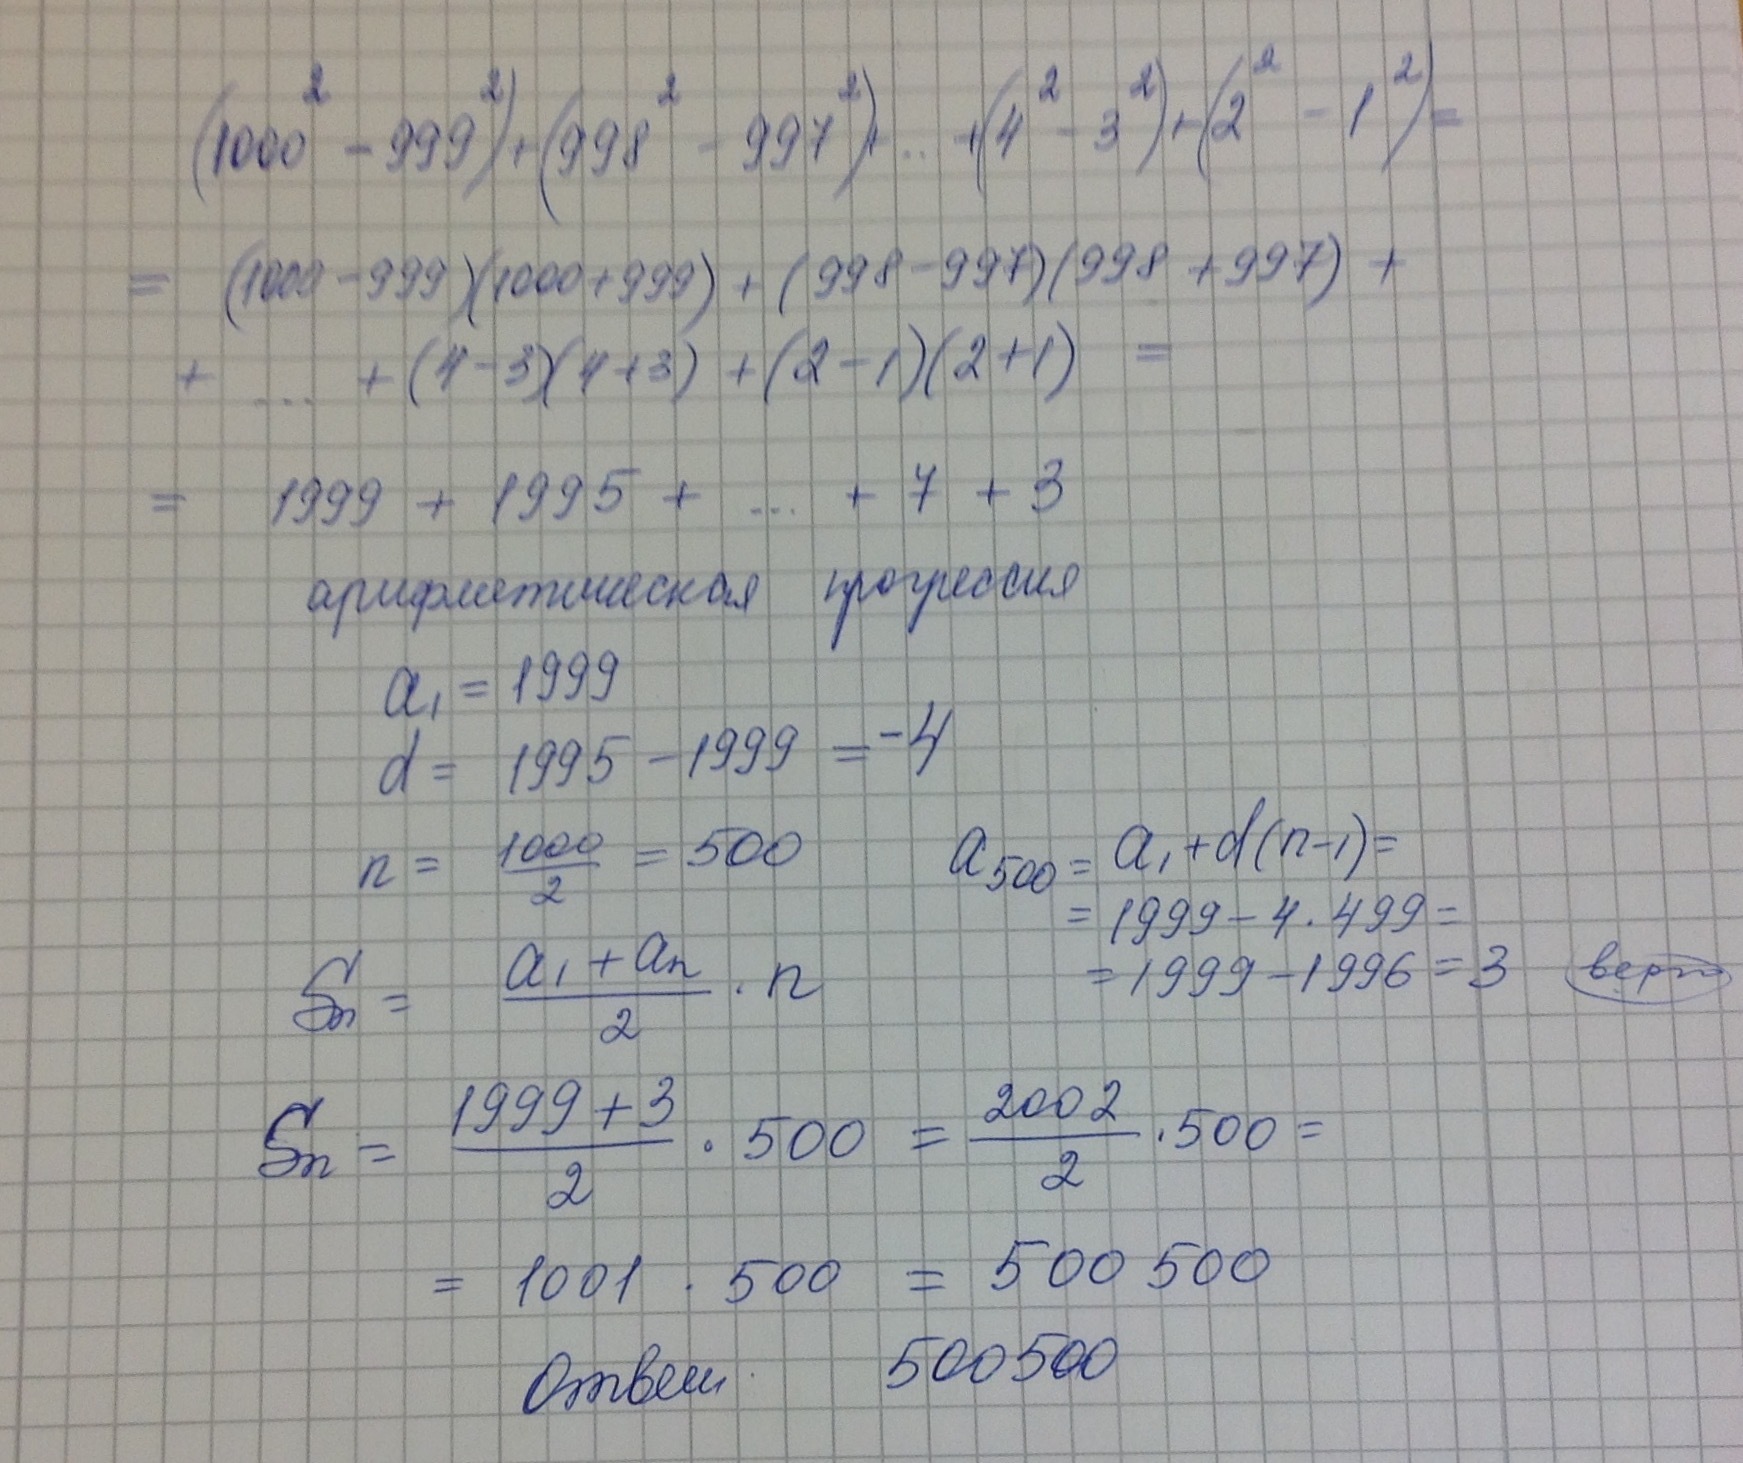 (1000² - 999²) + (998² - 997²) + ... + (4² - 3²) + (2² - 1²) =
= (1000 - 999)(1000 + 999) + (998 - 997)(998 + 997) +
+ ... + (4 - 3)(4 + 3) + (2 - 1)(2 + 1) =
= 1999 + 1995 + ... + 7 + 3
арифметическая прогрессия
a₁ = 1999
d = 1995 - 1999 = -4
n = 1000/2 = 500
a₅₀₀ = a₁ + d(n-1) =
= 1999 - 4 · 499 =
= 1999 - 1996 = 3 верно
Sₙ = (a₁ + aₙ)/2 · n
Sₙ = (1999 + 3)/2 · 500 = 2002/2 · 500 =
= 1001 · 500 = 500 500
Ответ. 500500